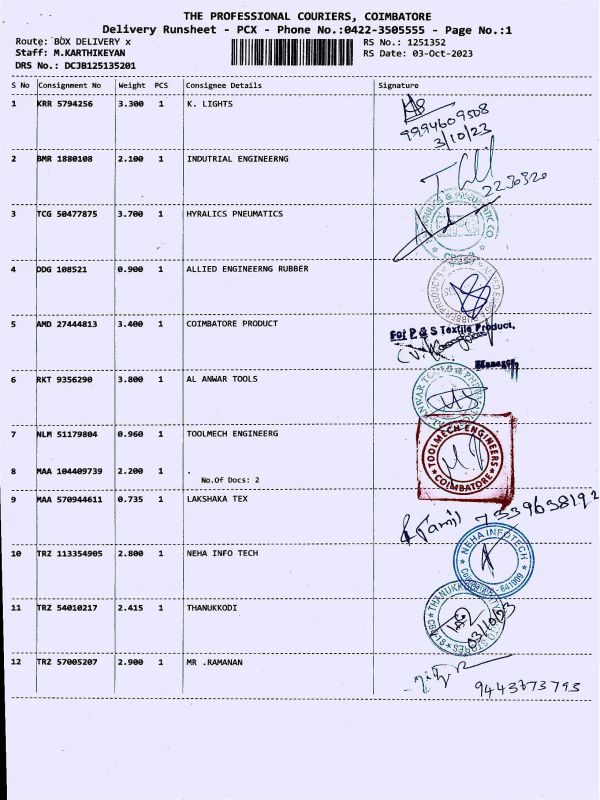 THE PROFESSIONAL COURIERS, COIMBATORE
Delivery Runsheet - PCX - Phone No.:0422-3505555 - Page No.:1
Route: BOX DELIVERY x RS No.: 1251352
Staff: M.KARTHIKEYAN RS Date: 03-Oct-2023
DRS No.: DCJB125135201
S No Consignment No Weight PCS Consignee Details Signature
1 KRR 5794256 3.300 1 K. LIGHTS
9994609508
3/10/23
2 BMR 1880108 2.100 1 INDUTRIAL ENGINEERNG
2236320
3 TCG 50477875 3.700 1 HYRALICS PNEUMATICS
4 DDG 108521 0.900 1 ALLIED ENGINEERNG RUBBER
5 AMD 27444813 3.400 1 COIMBATORE PRODUCT
For P & S Textile Product,
Manager
6 RKT 9356290 3.800 1 AL ANWAR TOOLS
7 NLM 51179804 0.960 1 TOOLMECH ENGINEERG
TOOLMECH ENGINEERS
COIMBATORE
8 MAA 104409739 2.200 1 .
No.Of Docs: 2
9 MAA 570944611 0.735 1 LAKSHAKA TEX
Tamil 7339638192
10 TRZ 113354905 2.800 1 NEHA INFO TECH
NEHA INFOTECH
11 TRZ 54010217 2.415 1 THANUKKODI
03/10/03
12 TRZ 57005207 2.900 1 MR .RAMANAN
9443773793